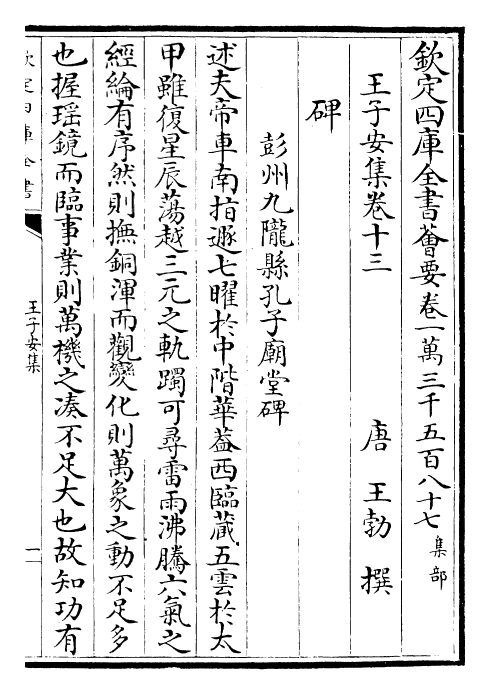 欽定四庫全書薈要卷一萬三千五百八十七集部
王子安集卷十三
唐 王勃 撰
碑
彭州九隴縣孔子廟堂碑
述夫帝車南指遯七曜於中階華蓋西臨藏五雲於太
甲雖復星辰蕩越三元之軌躅可尋雷雨沸騰六氣之
經綸有序然則撫銅渾而觀變化則萬象之動不足多
也握瑶鏡而臨事業則萬機之凑不足大也故知功有
欽定四庫全書
王子安集
一